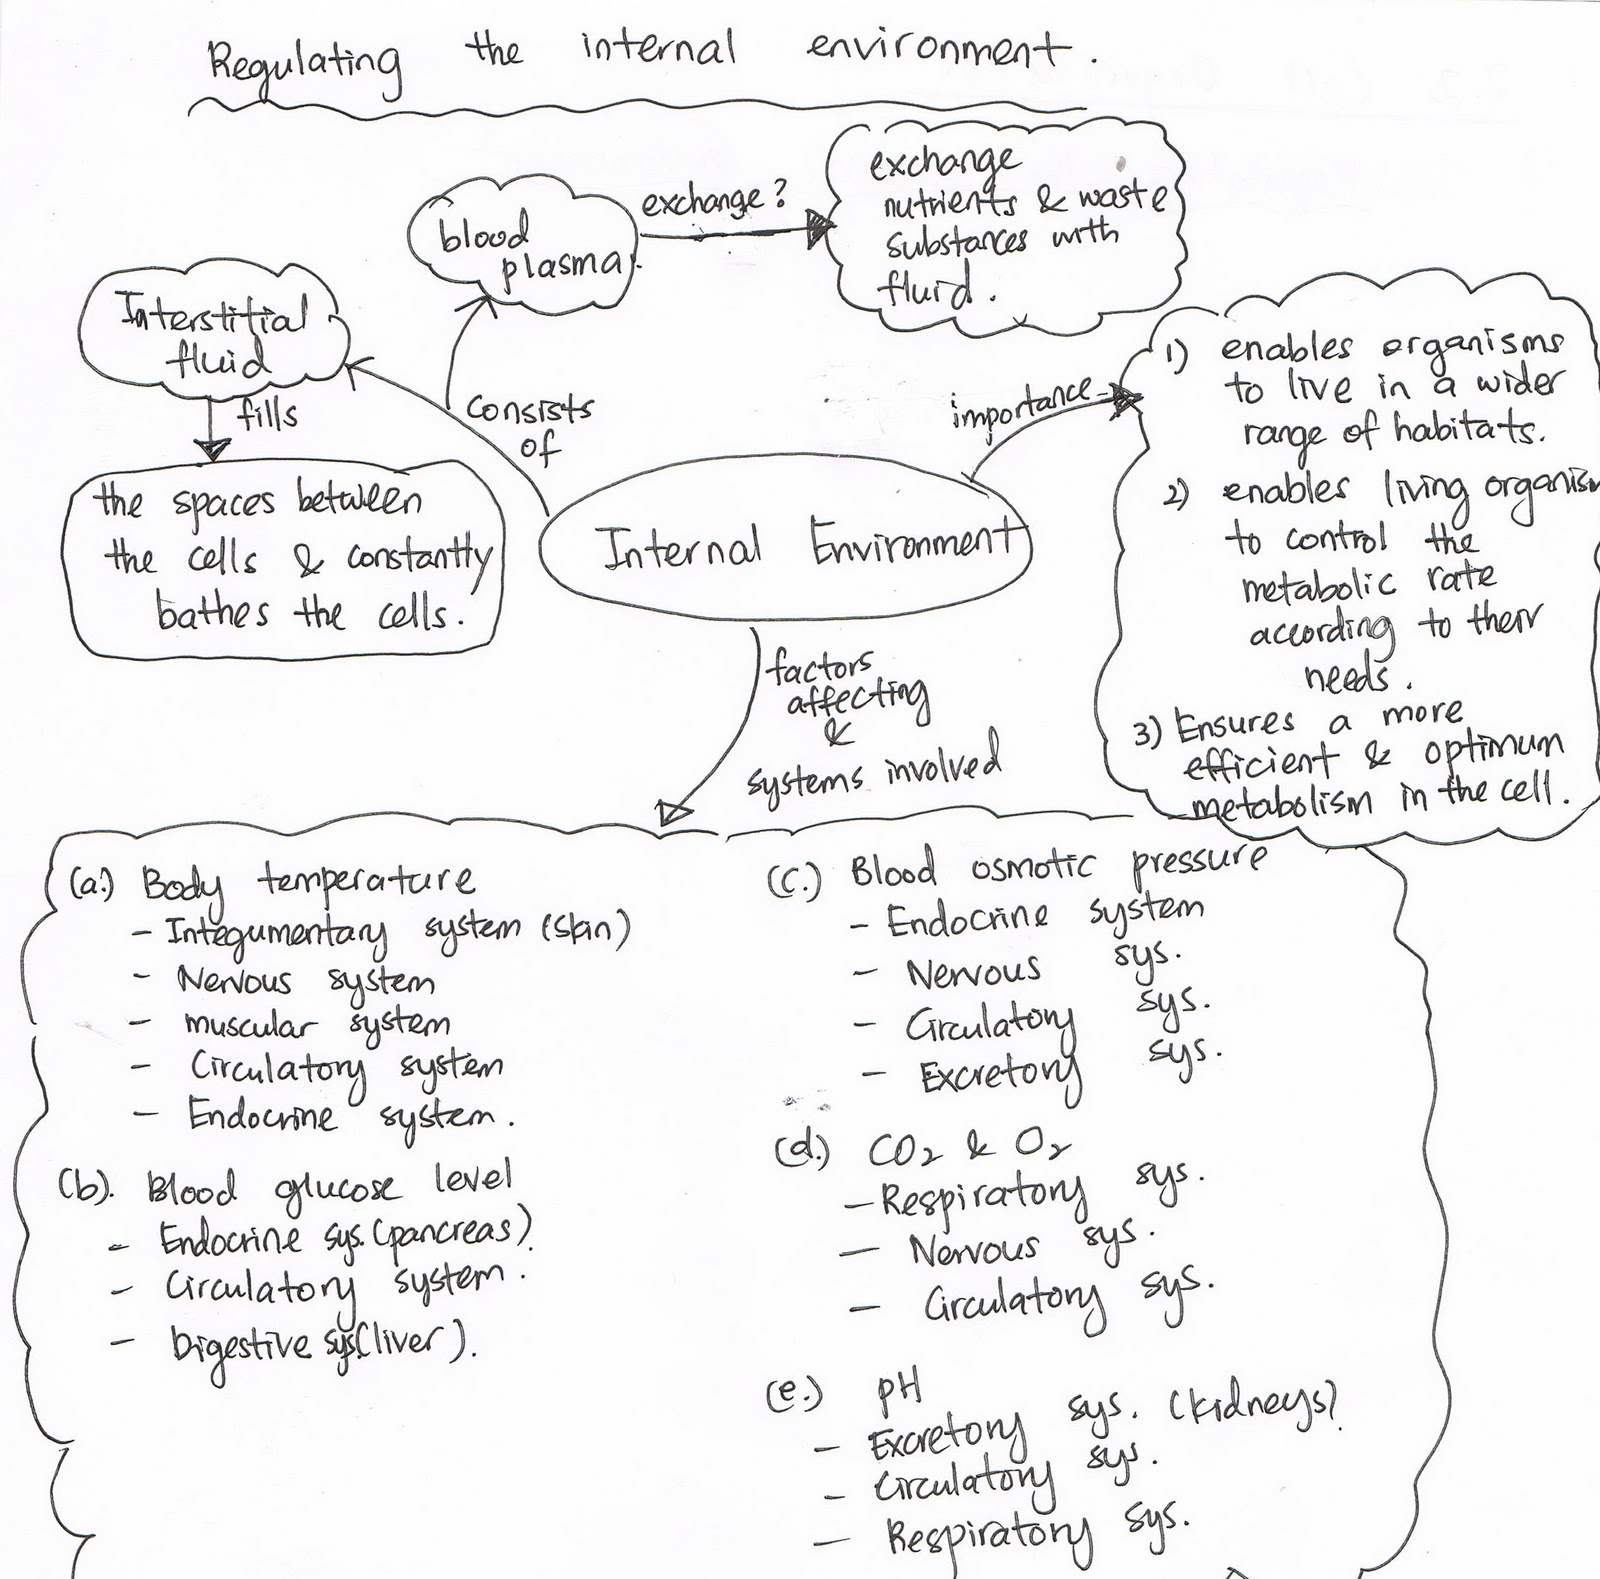 Regulating the internal environment.
exchange
nutrients & waste
substances with
fluid.
exchange?
blood
plasma
Interstitial
fluid
fills
consists
of
importance
1) enables organisms
to live in a wider
range of habitats.
2) enables living organism
to control the
metabolic rate
according to their
needs.
3) Ensures a more
efficient & optimum
metabolism in the cell.
the spaces between
the cells & constantly
bathes the cells.
Internal Environment
factors
affecting
&
systems involved
(a.) Body temperature
- Integumentary system (skin)
- Nervous system
- muscular system
- Circulatory system
- Endocrine system.
(b). Blood glucose level
- Endocrine sys. (pancreas).
- Circulatory system.
- Digestive sys. (liver).
(c.) Blood osmotic pressure
- Endocrine system
- Nervous sys.
- Circulatory sys.
- Excretory sys.
(d.) CO2 & O2
- Respiratory sys.
- Nervous sys.
- Circulatory sys.
(e.) pH
- Excretory sys. (kidneys)
- Circulatory sys.
- Respiratory sys.